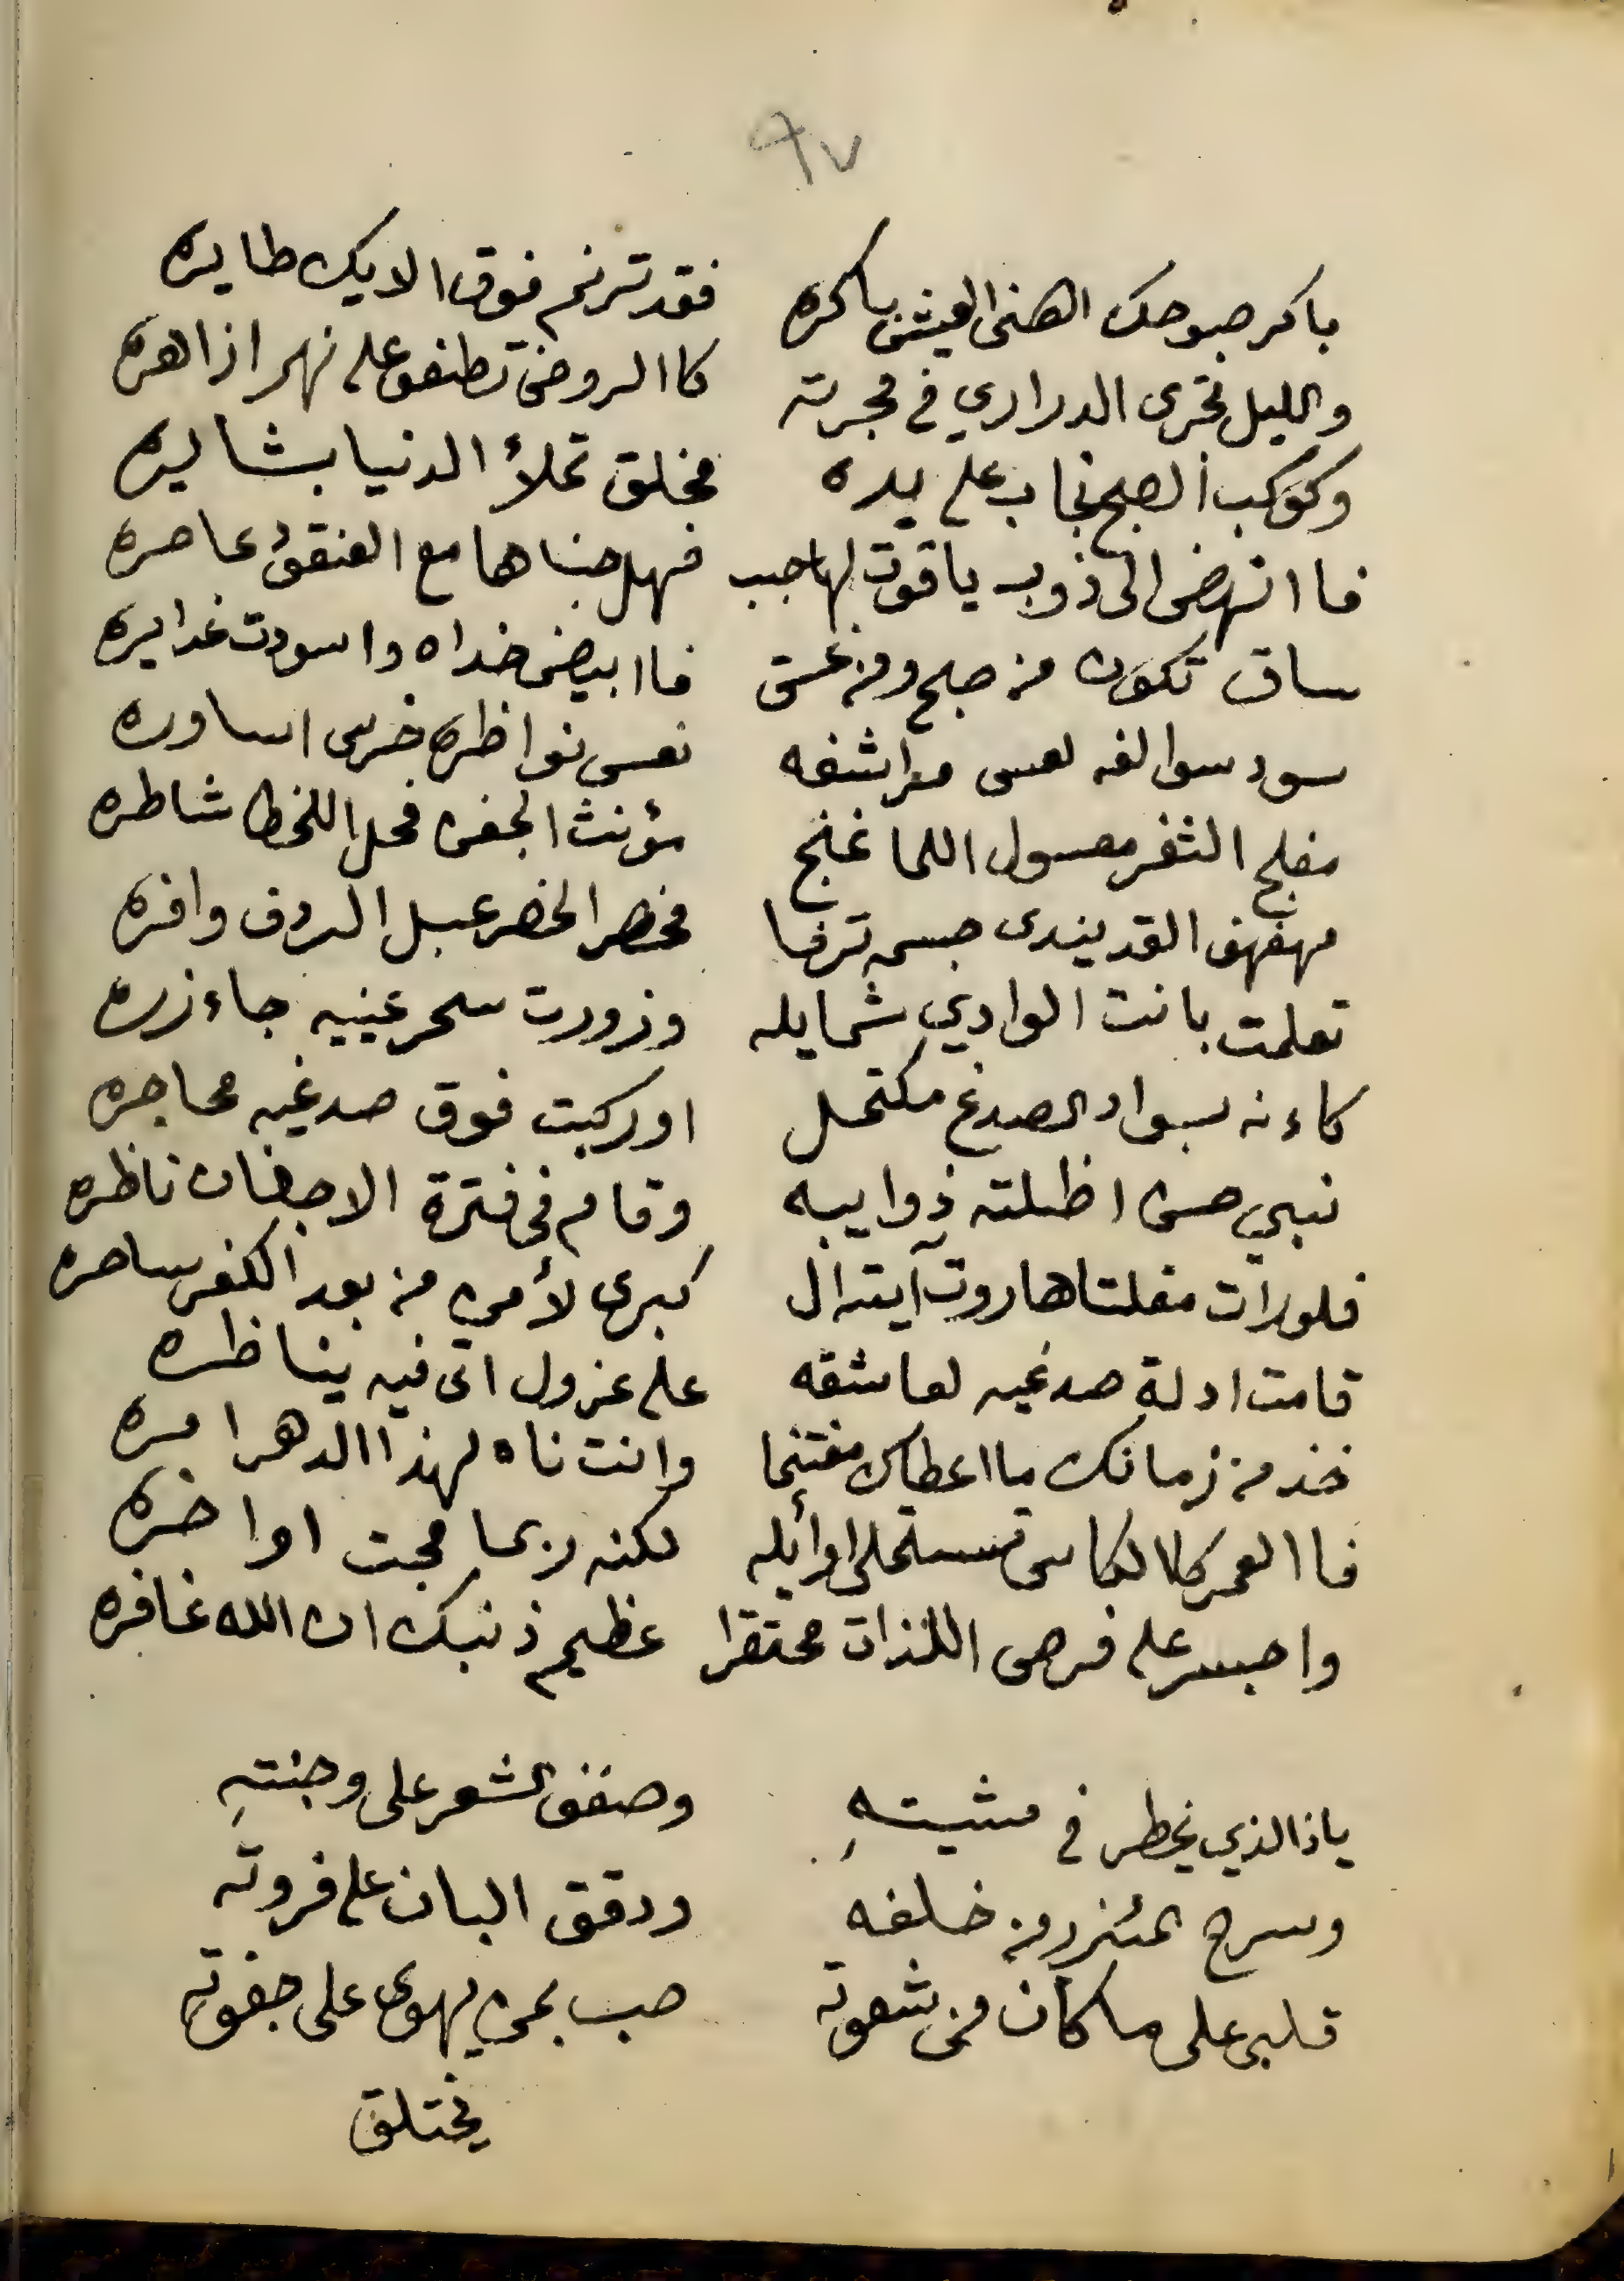 ٩٧
باكر صبوحك اهنى العيش باكره فقد ترنم فوق الايك طايره
والليل تجرى الدراري في مجرته كاالروض تطفو على نهر ازاهره
وكوكب الصبح نجاب على يده مخلق تملأ الدنيا بشايره
فاانهض الى ذوب ياقوت لها حبب فهل جناها مع العنقود عاصره
ساق تكون من صبح ومن غسق فاابيض خداه واسودت غدايره
سود سوالفه لعس مراشفه نعس نواظره خرس اساوره
مفلج الثغر معسول اللما غنج مؤنث الجفن فحل اللحظ شاطره
مهفهف القد يندى جسمه ترفا مخصر الخصر عبل الردف وافره
تعلمت بانت الوادي شمايله وزورت سحر عينيه جاءزره
كاءنه بسواد الصدغ مكتحل اوركبت فوق صدغيه محاجره
نبي حسن اظلته ذوايبه وقام في فترة الاجفان ناظره
فلورات مقلتا هاروت آيته ال كبرى لأمن من بعد الكفر ساحره
قامت ادلة صدغيه لعاشقه على عزول اتى فيه يناظره
خذ من زمانك مااعطاك مغتنما وانت ناه لهذا الدهر امره
فاالعمر كالكاس تستحلى اوائله لكنه ربما مجت اواخره
واجسر على فرص اللذات محتقرا عظيم ذنبك ان الله غافره
ياذا الذي يخطر في مشيتهِ وصفف الشعر على وجنتهِ
وسرح المئزر من خلفه ودقق البان على فروته
قلبي على ماكان من شقوته صب بمن يهوى على جفوتهِ
يختلق